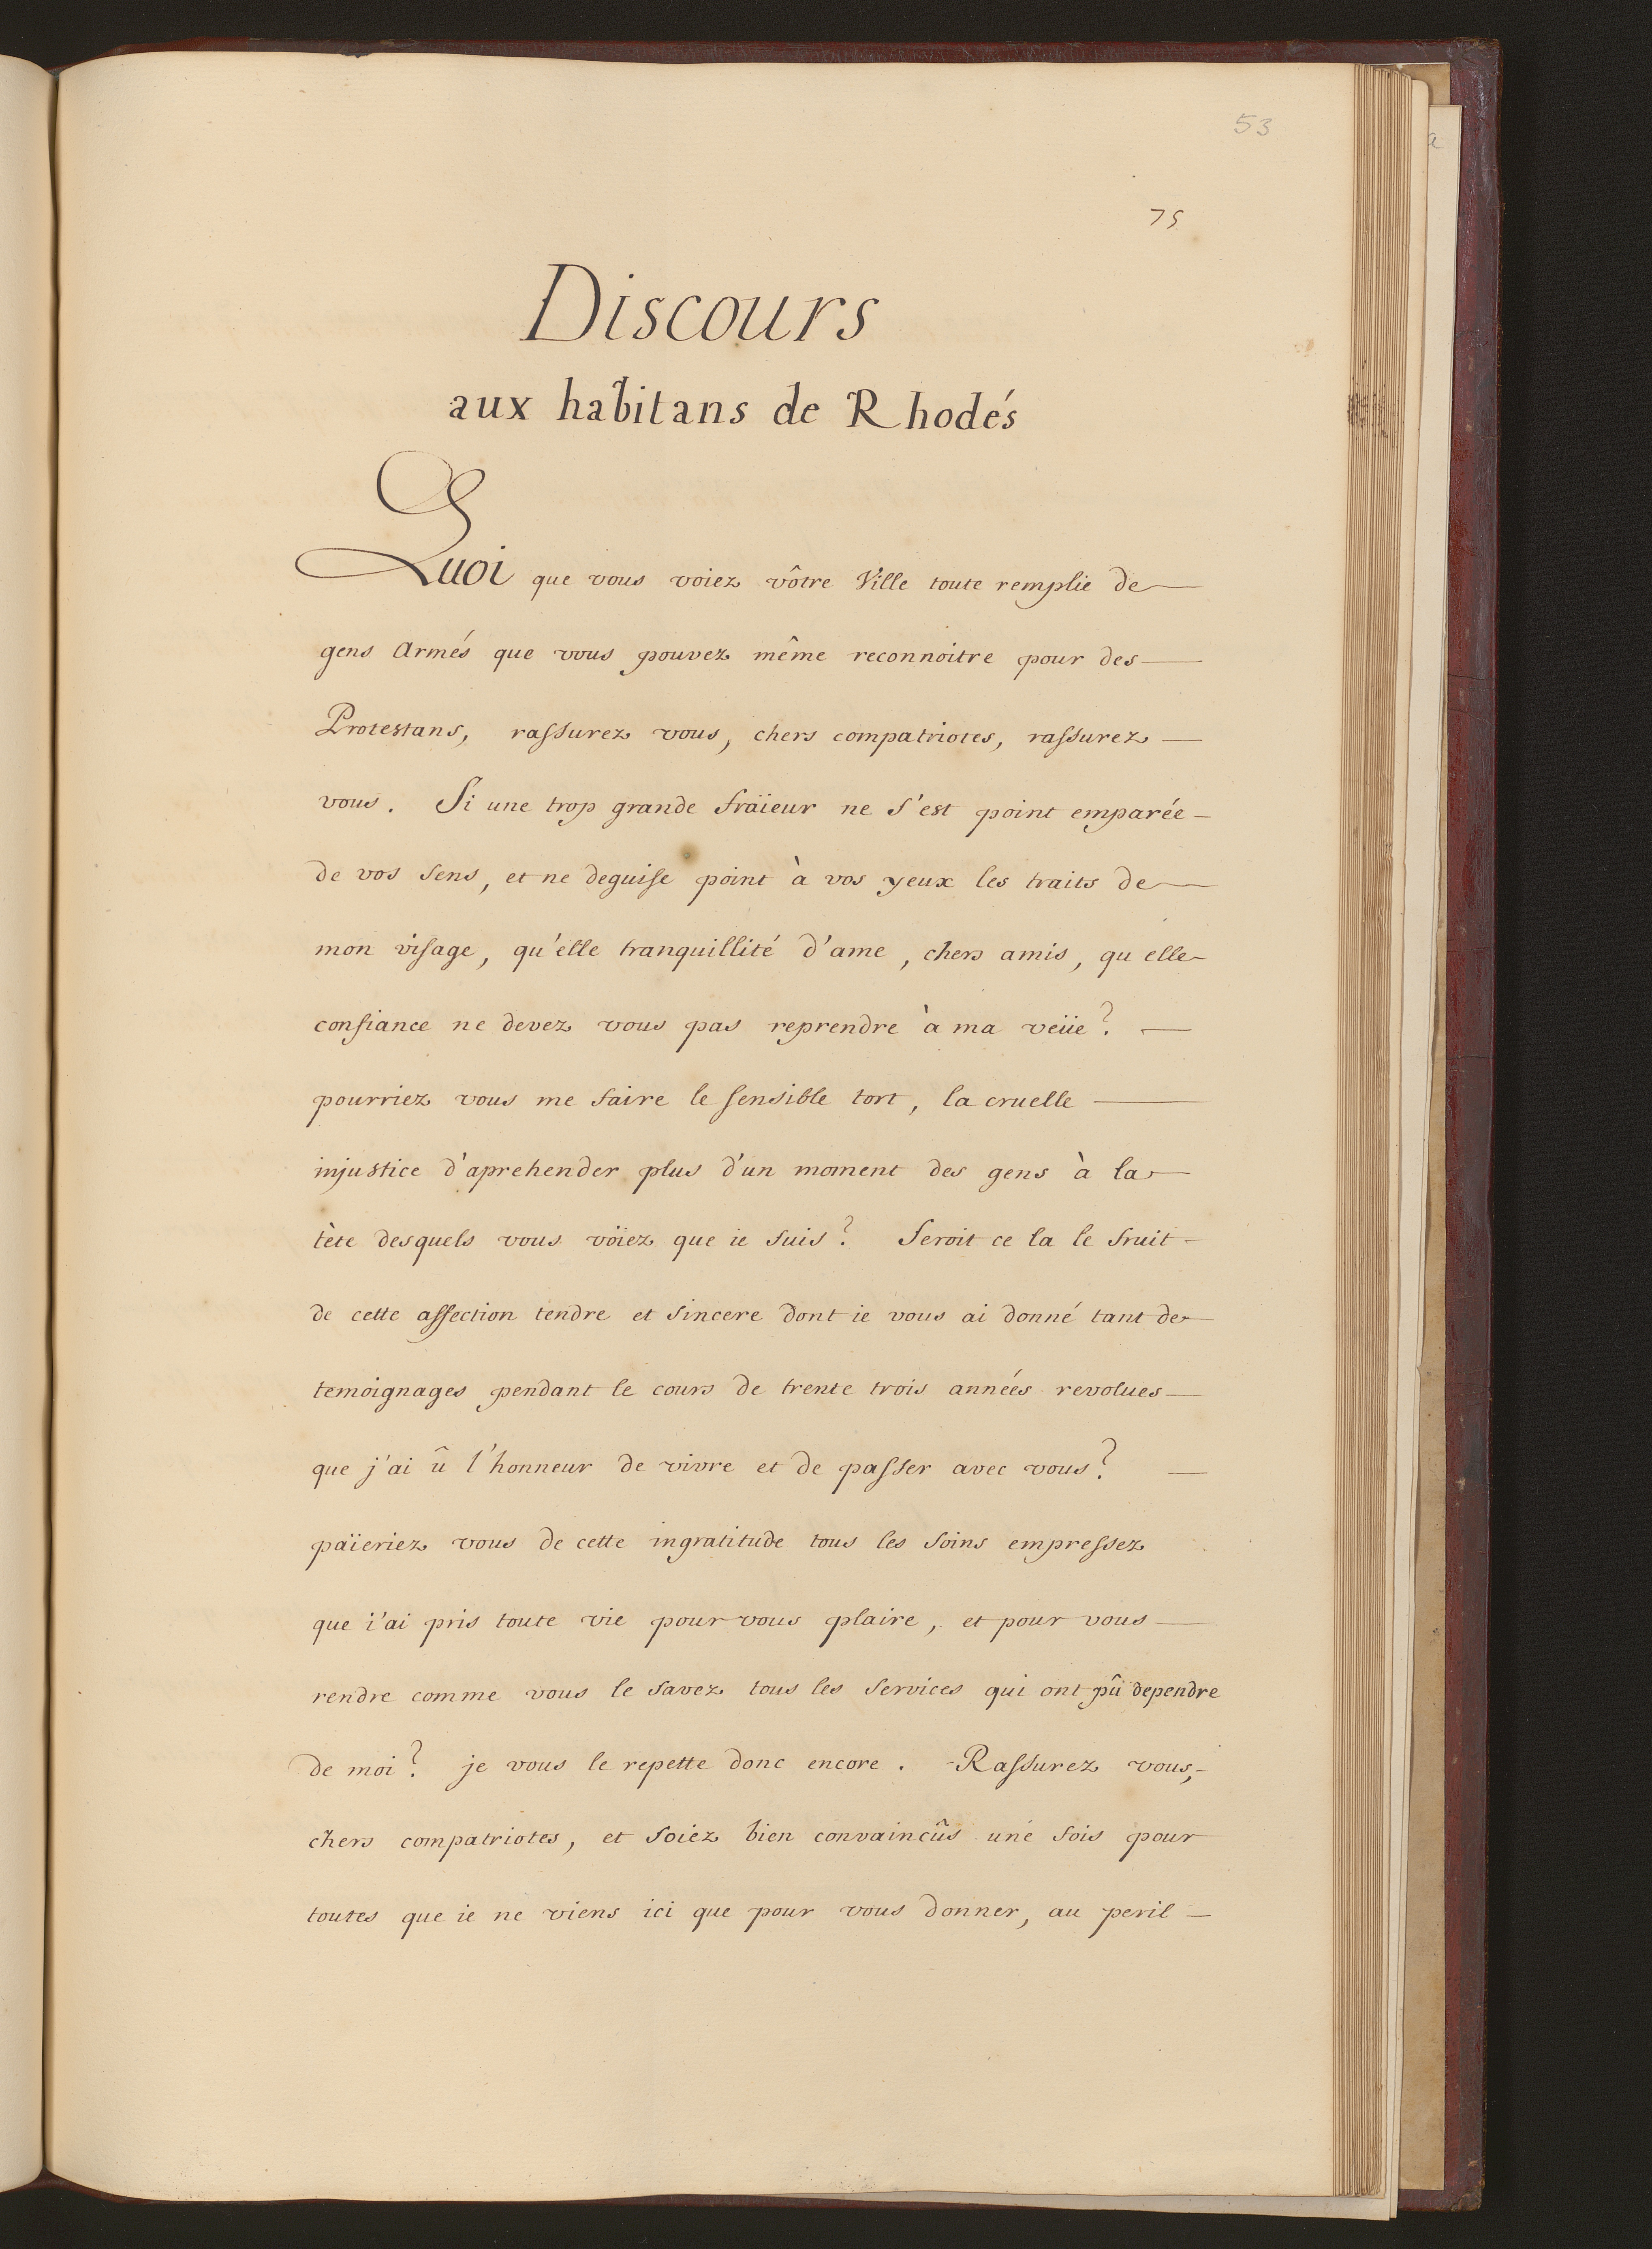 53
75
Discours
aux habitans de Rhodés
Quoi que vous voiez vôtre Ville toute remplie de
gens armés que vous pouvez même reconnoitre pour des
Protestans, rassurez vous, chers compatriotes, rassurez
vous. Si une trop grande fraïeur ne s'est point emparée
de vos sens, et ne deguise point à vos yeux les traits de
mon visage, qu'elle tranquillité d'ame, chers amis, qu elle
confiance ne devez vous pas reprendre à ma veüe?
pourriez vous me faire le sensible tort, la cruelle
injustice d'aprehender plus d'un moment des gens à la
tète desquels vous voïez que ie suis? Seroit ce la le fruit
de cette affection tendre et sincere dont ie vous ai donné tant de
temoignages pendant le cours de trente trois années revolues
que j'ai û l'honneur de vivre et de passer avec vous?
païeriez vous de cette ingratitude tous les soins empressez
que i'ai pris toute vie pour vous plaire, et pour vous
rendre comme vous le savez tous les services qui ont pû dependre
de moi? je vous le repette donc encore. Rassurez vous,
chers compatriotes, et soiez bien convaincûs une fois pour
toutes que ie ne viens ici que pour vous donner, au peril